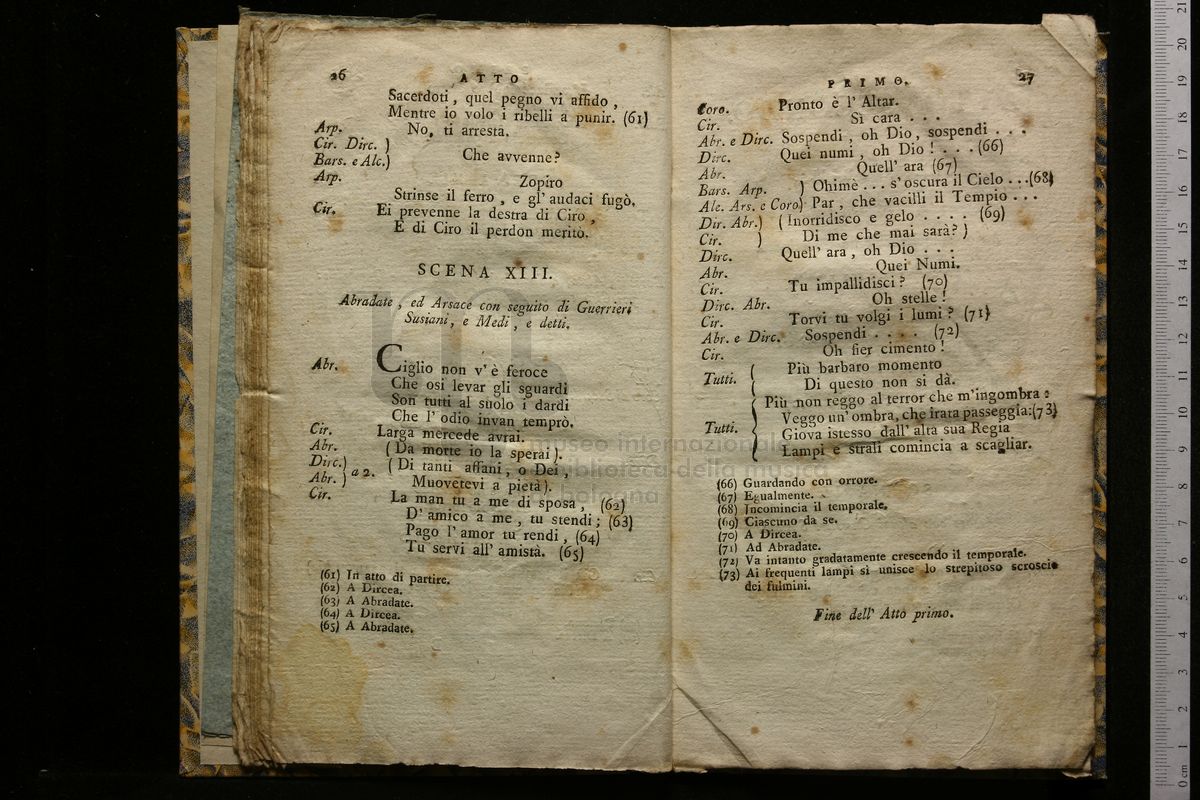 26 ATTO
Sacerdoti, quel pegno vi affido,
Mentre io volo i ribelli a punir. (61)
Arp. No, ti arresta.
Cir. Dirc. )
Bars. e Alc.) Che avvenne?
Arp. Zopiro
Strinse il ferro, e gl' audaci fugò.
Cir. Ei prevenne la destra di Ciro,
E di Ciro il perdon meritò.
SCENA XIII.
Abradate, ed Arsace con seguito di Guerrieri
Susiani, e Medi, e detti.
Abr. Ciglio non v' è feroce
Che osi levar gli sguardi
Son tutti al suolo i dardi
Che l' odio invan temprò.
Cir. Larga mercede avrai.
Abr. (Da morte io la sperai).
Dirc.) a 2. (Di tanti affani, o Dei,
Abr. ) Muovetevi a pietà).
Cir. La man tu a me di sposa, (62)
D' amico a me, tu stendi; (63)
Pago l' amor tu rendi, (64)
Tu servi all' amistà. (65)
(61) In atto di partire.
(62) A Dircea.
(63) A Abradate.
(64) A Dircea.
(65) A Abradate.
PRIMO. 27
Coro. Pronto è l' Altar.
Cir. Sì cara . . .
Abr. e Dirc. Sospendi, oh Dio, sospendi . . .
Dirc. Quei numi, oh Dio! . . . (66)
Abr. Quell' ara (67)
Bars. Arp. ) Ohimè . . . s' oscura il Cielo . . .(68)
Alc. Ars. e Coro) Par, che vacilli il Tempio . . .
Dir. Abr.) (Inorridisco e gelo . . . . (69)
Cir. ) Di me che mai sarà? )
Dirc. Quell' ara, oh Dio . . .
Abr. Quei Numi.
Cir. Tu impallidisci? (70)
Dirc. Abr. Oh stelle!
Cir. Torvi tu volgi i lumi? (71)
Abr. e Dirc. Sospendi . . . . (72)
Cir. Oh fier cimento!
Tutti. ( Più barbaro momento
Di questo non si dà.
Più non reggo al terror che m'ingombra:
Veggo un' ombra, che irata passeggia:(73)
Tutti. Giova istesso dall' alta sua Regia
Lampi e strali comincia a scagliar.
(66) Guardando con orrore.
(67) Egualmente.
(68) Incomincia il temporale.
(69) Ciascuno da se.
(70) A Dircea.
(71) Ad Abradate.
(72) Va intanto gradatamente crescendo il temporale.
(73) Ai frequenti lampi si unisce lo strepitoso scroscio
dei fulmini.
Fine dell' Atto primo.
museo internazionale
biblioteca della musica
bologna
0 cm 1 2 3 4 5 6 7 8 9 10 11 12 13 14 15 16 17 18 19 20 21